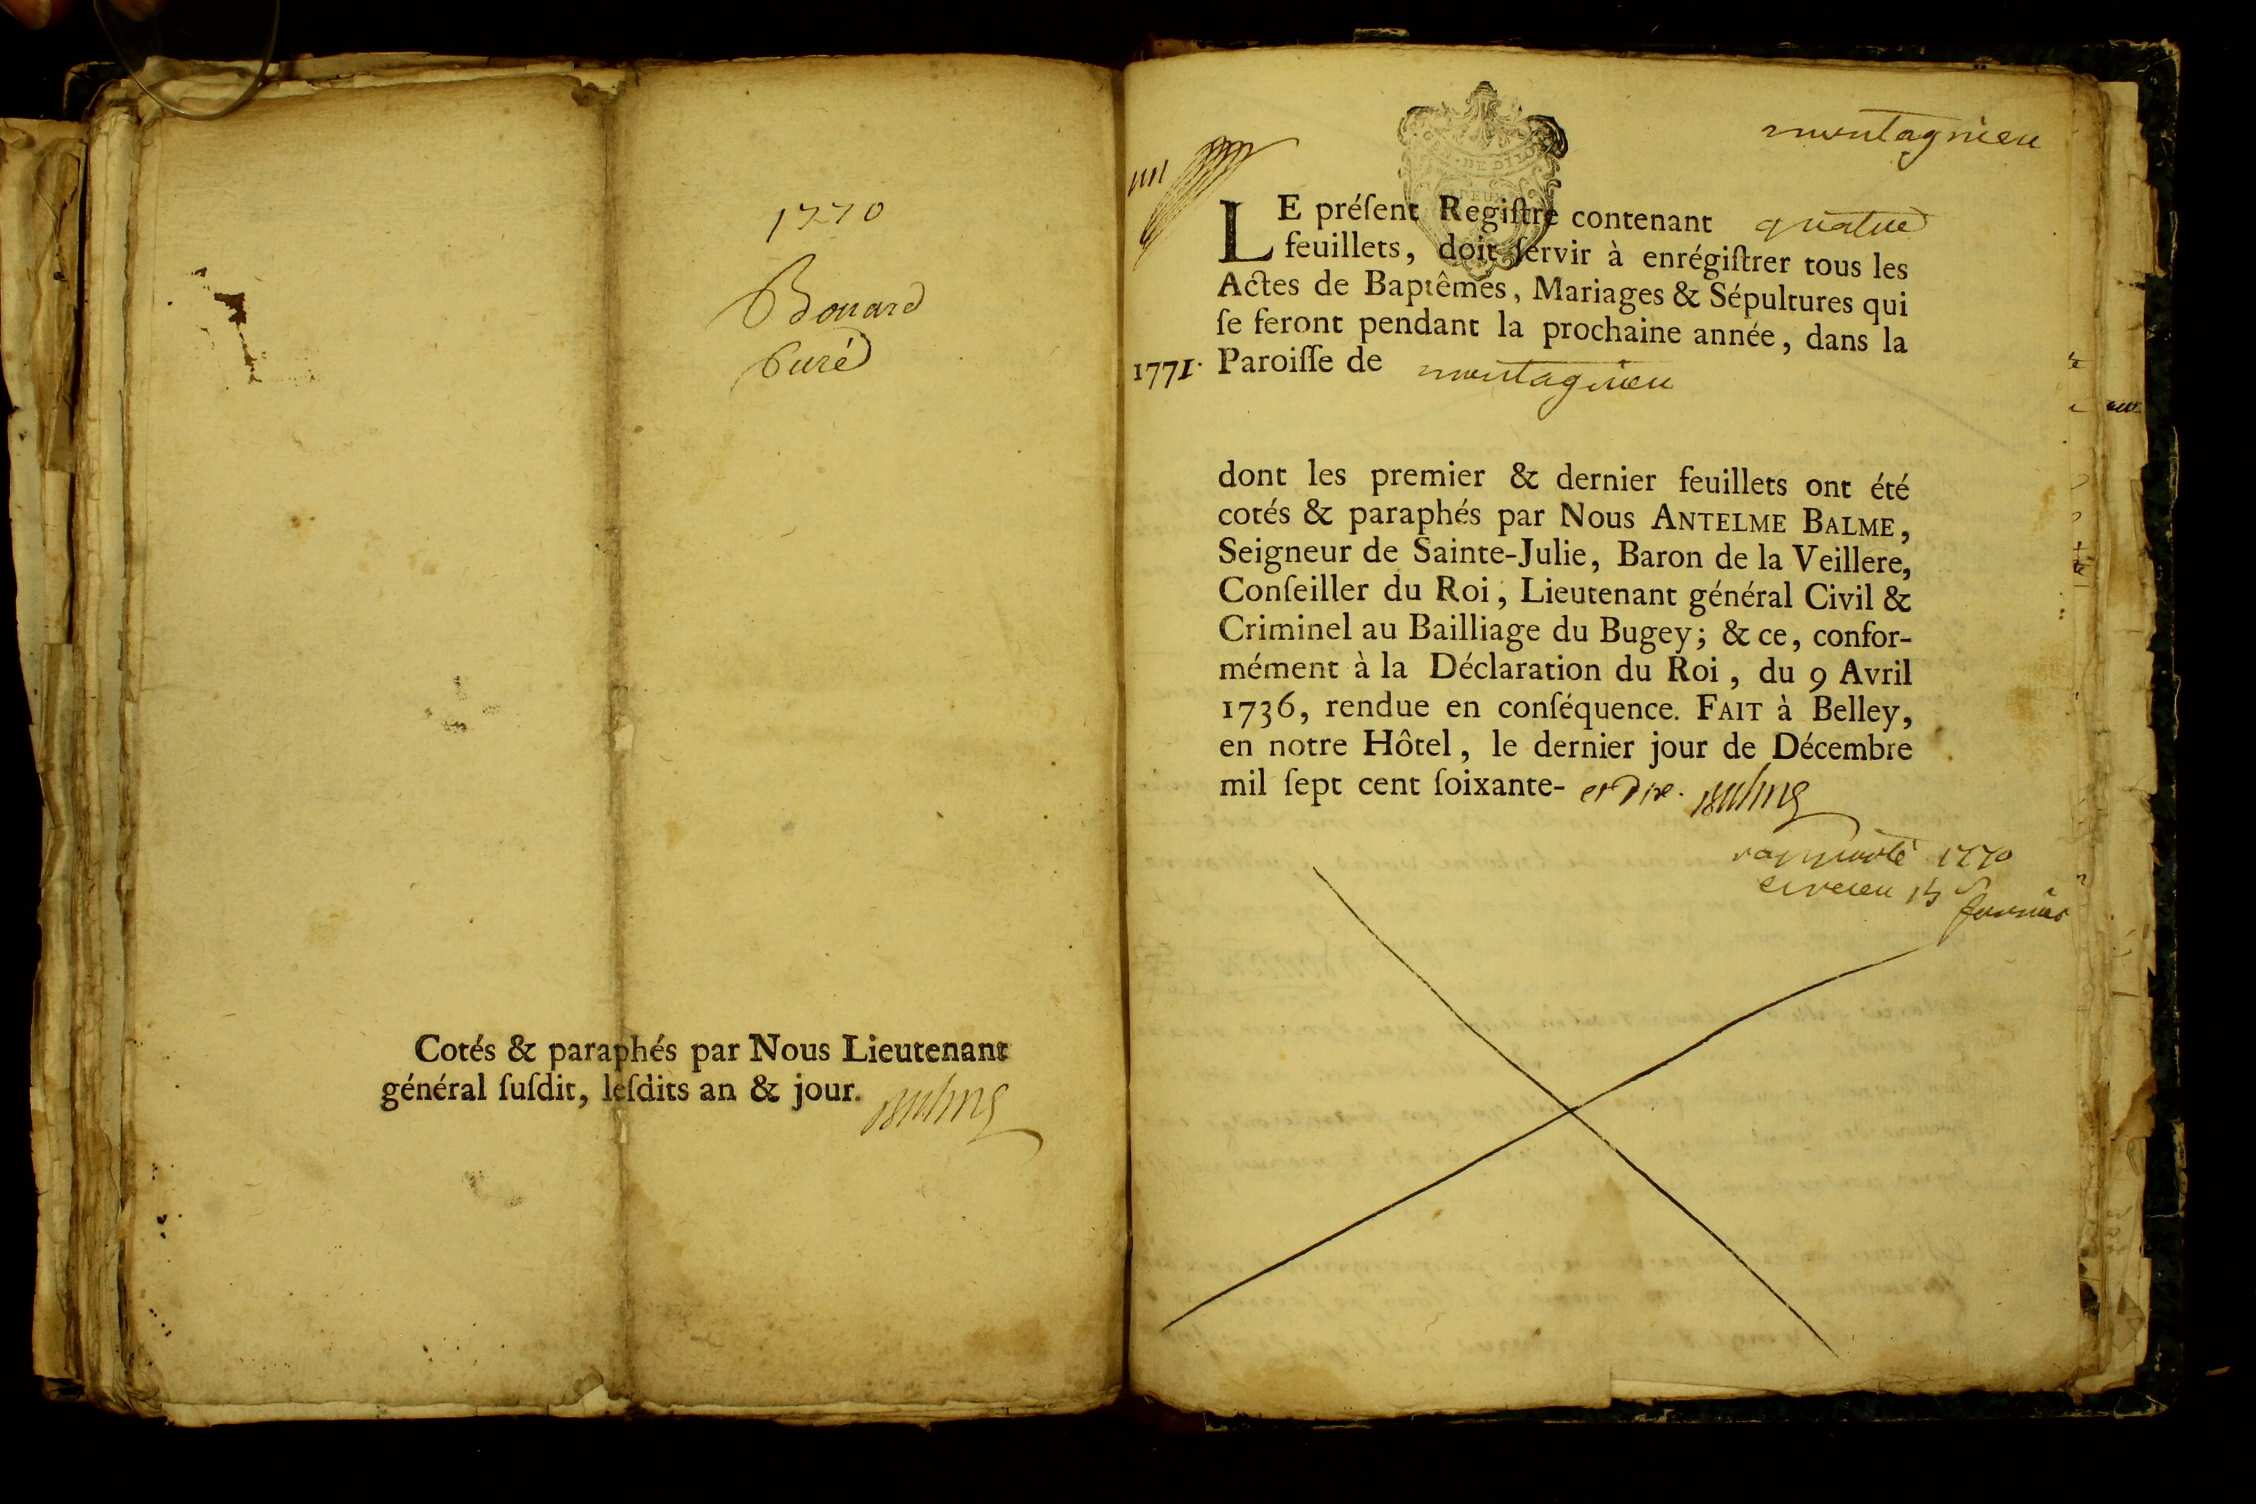 1770
Bouard
Curé
Cotés & paraphés par Nous Lieutenant
général ſuſdit, leſdits an & jour. Balme
montagnieu
LE préſent Regiſtre contenant quatre
feuillets, doit ſervir à enrégiſtrer tous les
Actes de Baptêmes, Mariages & Sépultures qui
ſe feront pendant la prochaine année, dans la
1771. Paroiſſe de montagnieu
dont les premier & dernier feuillets ont été
cotés & paraphés par Nous ANTELME BALME,
Seigneur de Sainte-Julie, Baron de la Veillere,
Conſeiller du Roi, Lieutenant général Civil &
Criminel au Bailliage du Bugey; & ce, confor-
mément à la Déclaration du Roi, du 9 Avril
1736, rendue en conſéquence. FAIT à Belley,
en notre Hôtel, le dernier jour de Décembre
mil ſept cent ſoixante- et dix. Balme
rapporté 1770
15